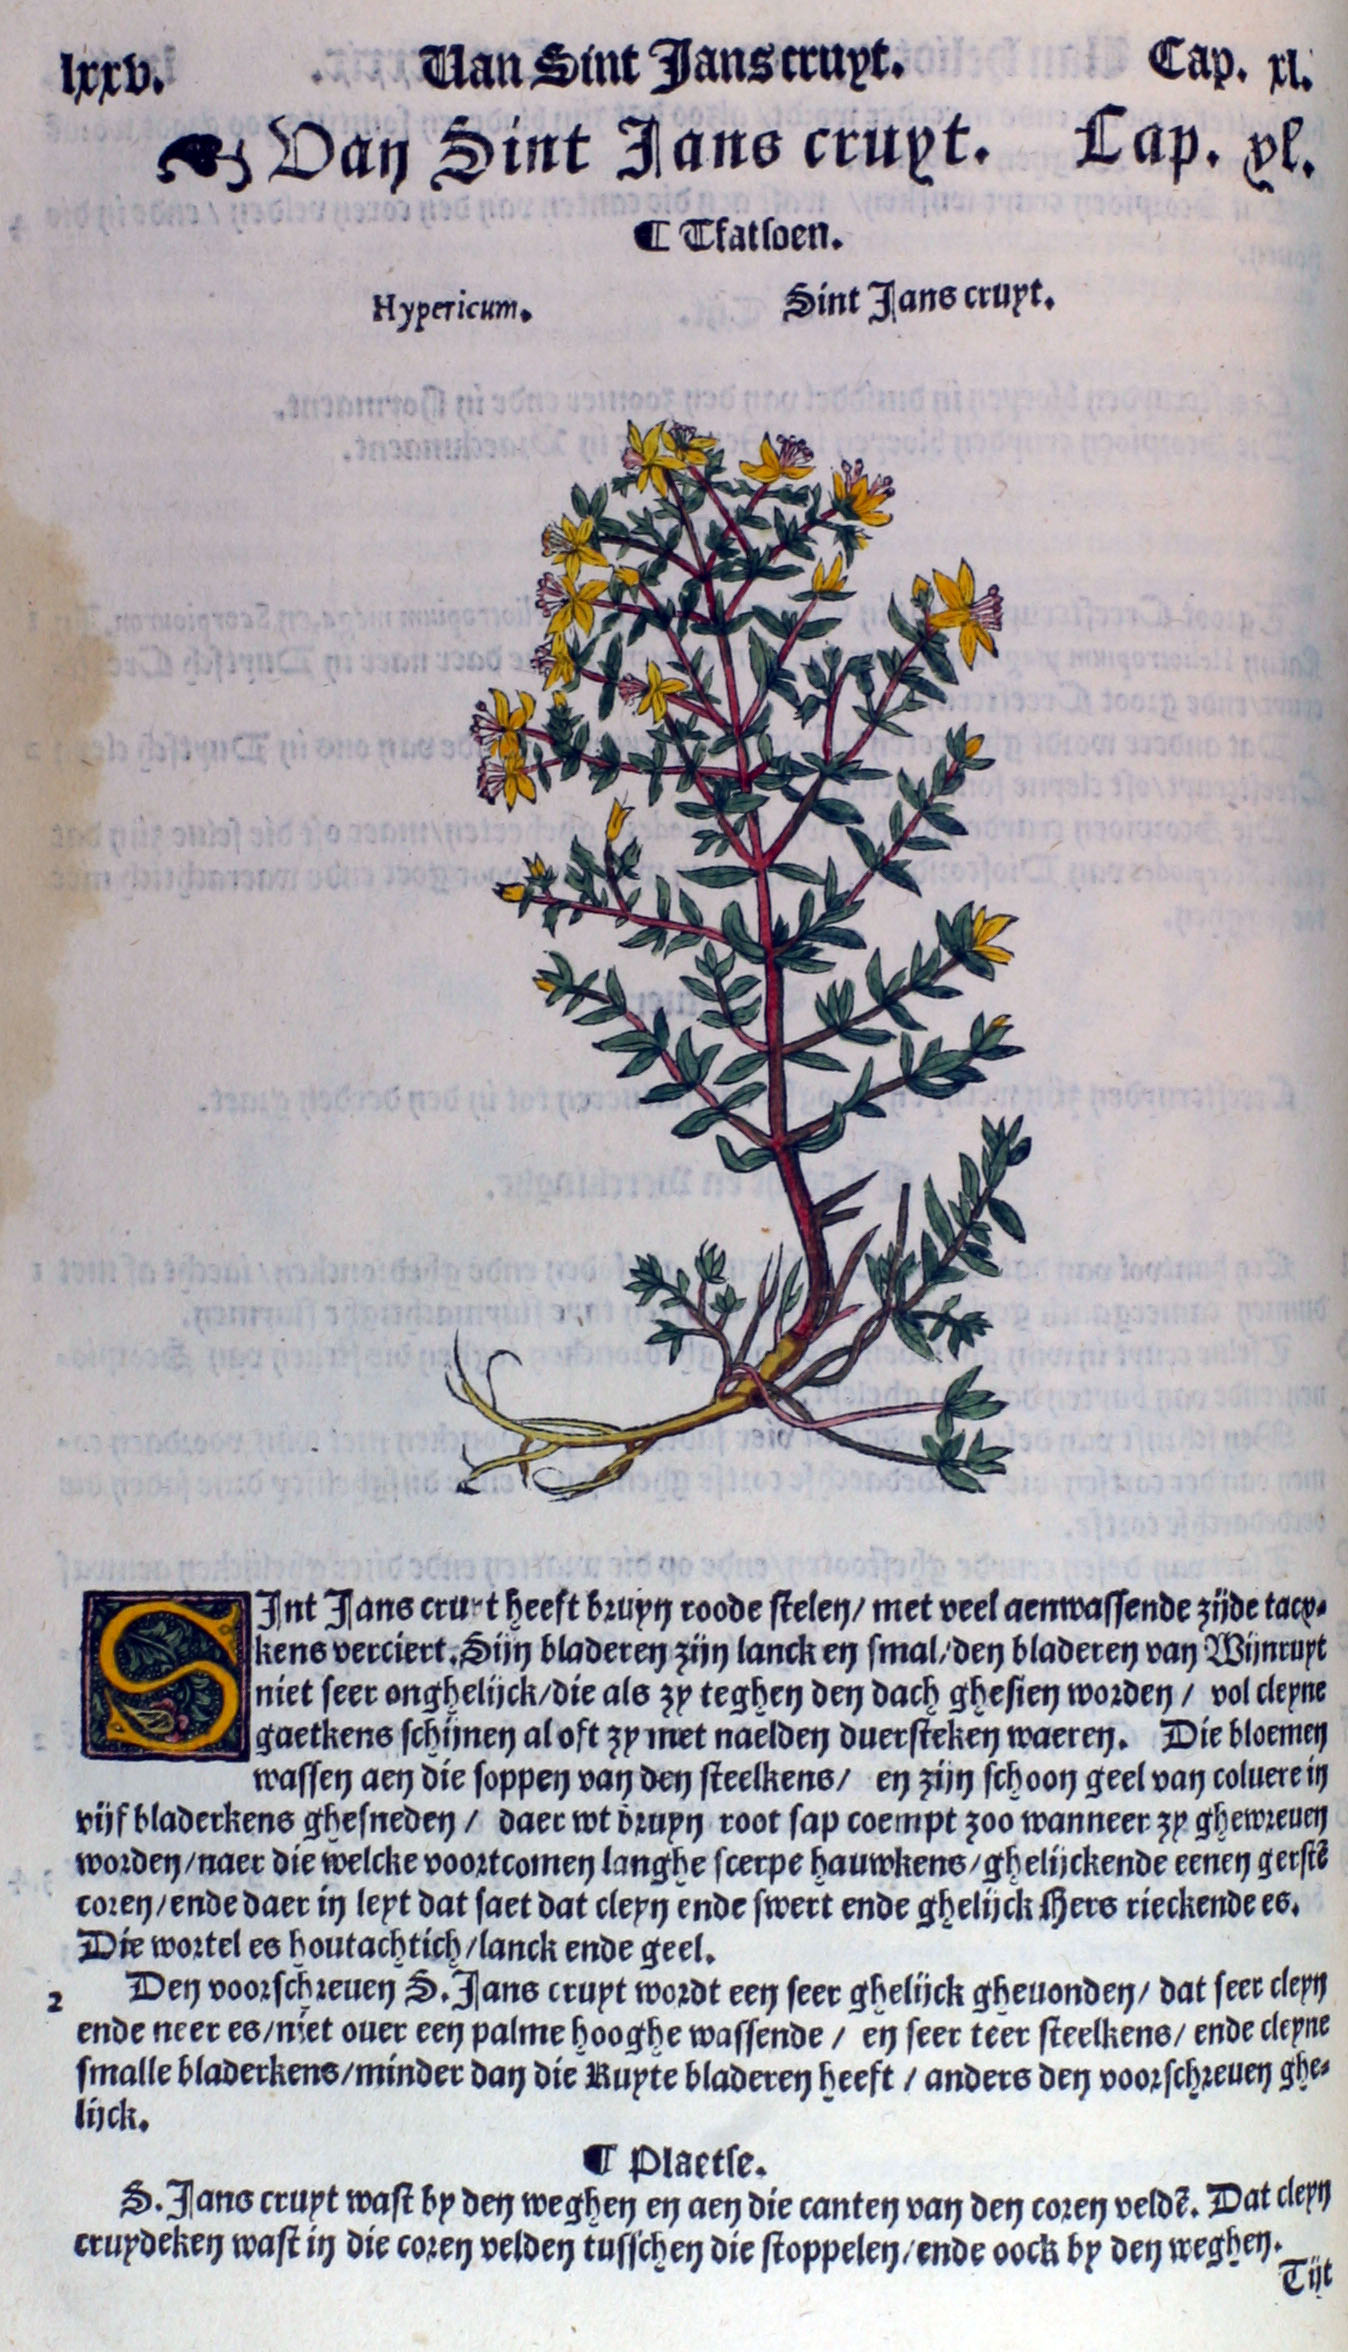 lxxv. Van Sint Jans cruyt. Cap. xl.
Van Sint Jans cruyt. Cap. xl.
¶ Tfatsoen.
Hypericum. Sint Jans cruyt.
SInt Jans cruyt heeft bruyn roode stelen/ met veel aenwassende zijde tacx-
kens verciert. Sijn bladeren zijn lanck en smal/ den bladeren van Wijnruyt
niet seer onghelijck/die als zy teghen den dach ghesien worden/ vol cleyne
gaetkens schijnen al oft zy met naelden duersteken waeren. Die bloemen
wassen aen die soppen van den steelkens/ en zijn schoon geel van coluere in
vijf bladerkens ghesneden/ daer wt bruyn root sap coempt zoo wanneer zy ghewreuen
worden/naer die welcke voortcomen langhe scerpe hauwkens/ghelijckende eenen gerstē
coren/ende daer in leyt dat saet dat cleyn ende swert ende ghelijck Hers rieckende es.
Die wortel es houtachtich/lanck ende geel.
2 Den voorschreuen S. Jans cruyt wordt een seer ghelijck gheuonden/ dat seer cleyn
ende neer es/niet ouer een palme hooghe wassende/ en seer teer steelkens/ ende cleyne
smalle bladerkens/minder dan die Ruyte bladeren heeft/ anders den voorschreuen ghe-
lijck.
¶ Plaetse.
S. Jans cruyt wast by den weghen en aen die canten van den coren veldē. Dat cleyn
cruydeken wast in die coren velden tusschen die stoppelen/ende oock by den weghen.
Tijt